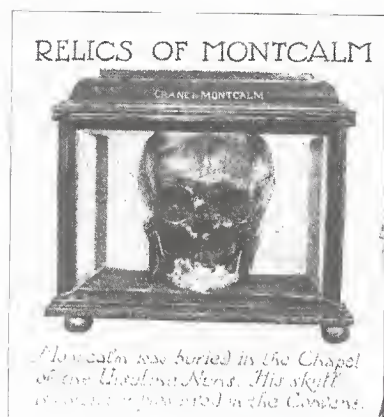 RELICS OF MONTCALM
CRANE MONTCALM
Montcalm was buried in the Chapel
of the Ursuline Nuns. His skull
preserved in the Convent.